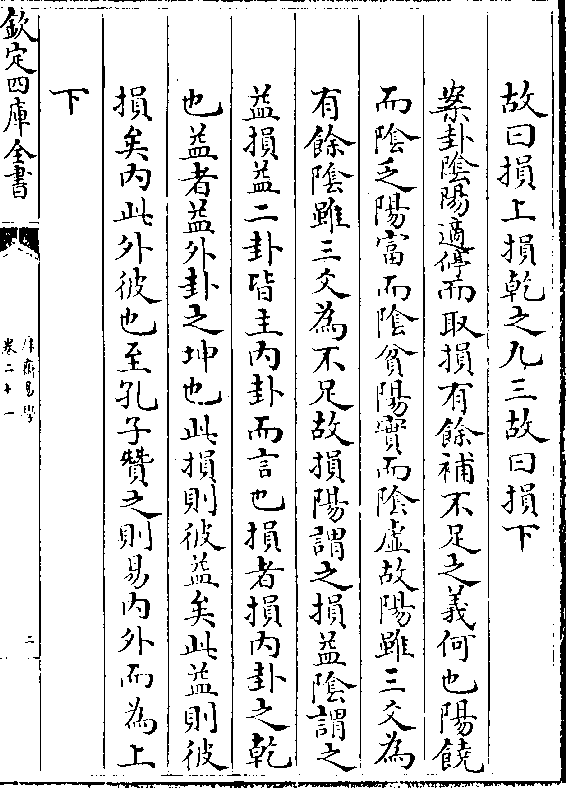 故曰損上損乾之九三故曰損下
案卦陰陽適停而取損有餘補不足之義何也陽饒
而陰乏陽富而陰貧陽實而陰虛故陽雖三爻為
有餘陰雖三爻為不足故損陽謂之損益陰謂之
益損益二卦皆主內卦而言也損者損內卦之乾
也益者益外卦之坤也此損則彼益矣此益則彼
損矣內此外彼也至孔子贊之則易內外而為上
下
欽定四庫全書
卷二十一
二